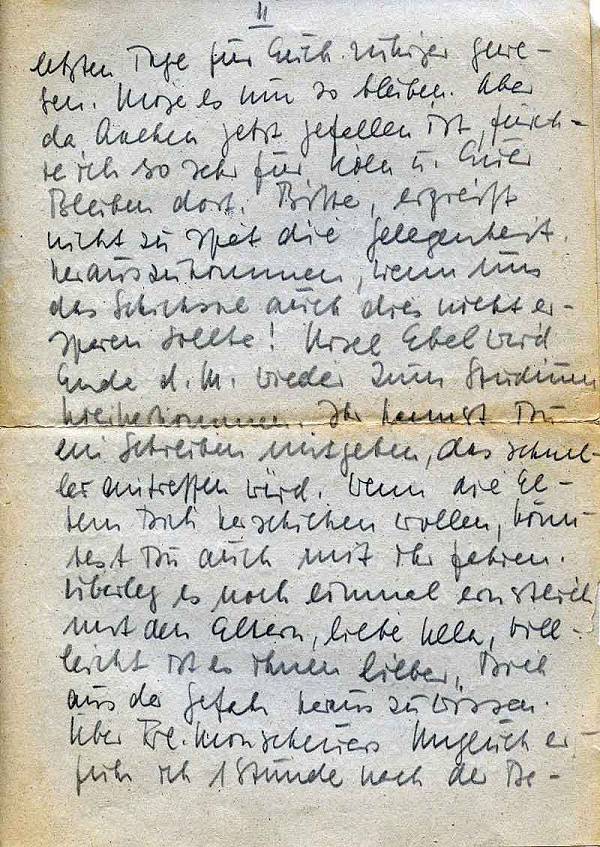 II
letzten Tage für Euch ruhiger gewe-
sen. Möge es nun so bleiben. Aber
da Aachen jetzt gefallen ist, fürch-
te ich so sehr für Köln u. Euer
Bleiben dort. Bitte, ergreift
nicht zu spät die Gelegenheit
herauszukommen, wenn uns
das Schicksal auch dies nicht er-
sparen sollte! Ursel Ebel wird
Ende d. M. wieder zum Studium
kannst Du
ein Schreiben mitgeben, das schnel-
ler eintreffen wird. Wenn die El-
tern Dich herschicken wollen, könn-
test Du auch mit ihr fahren.
Überleg es noch einmal ernstlich
mit den Eltern, liebe Hella, viel-
leicht ist es ihnen lieber, Dich
aus der Gefahr heraus zu wissen.
Über Frl. Monscheuers Unglück er-
fuhr ich 1 Stunde nach der Be-